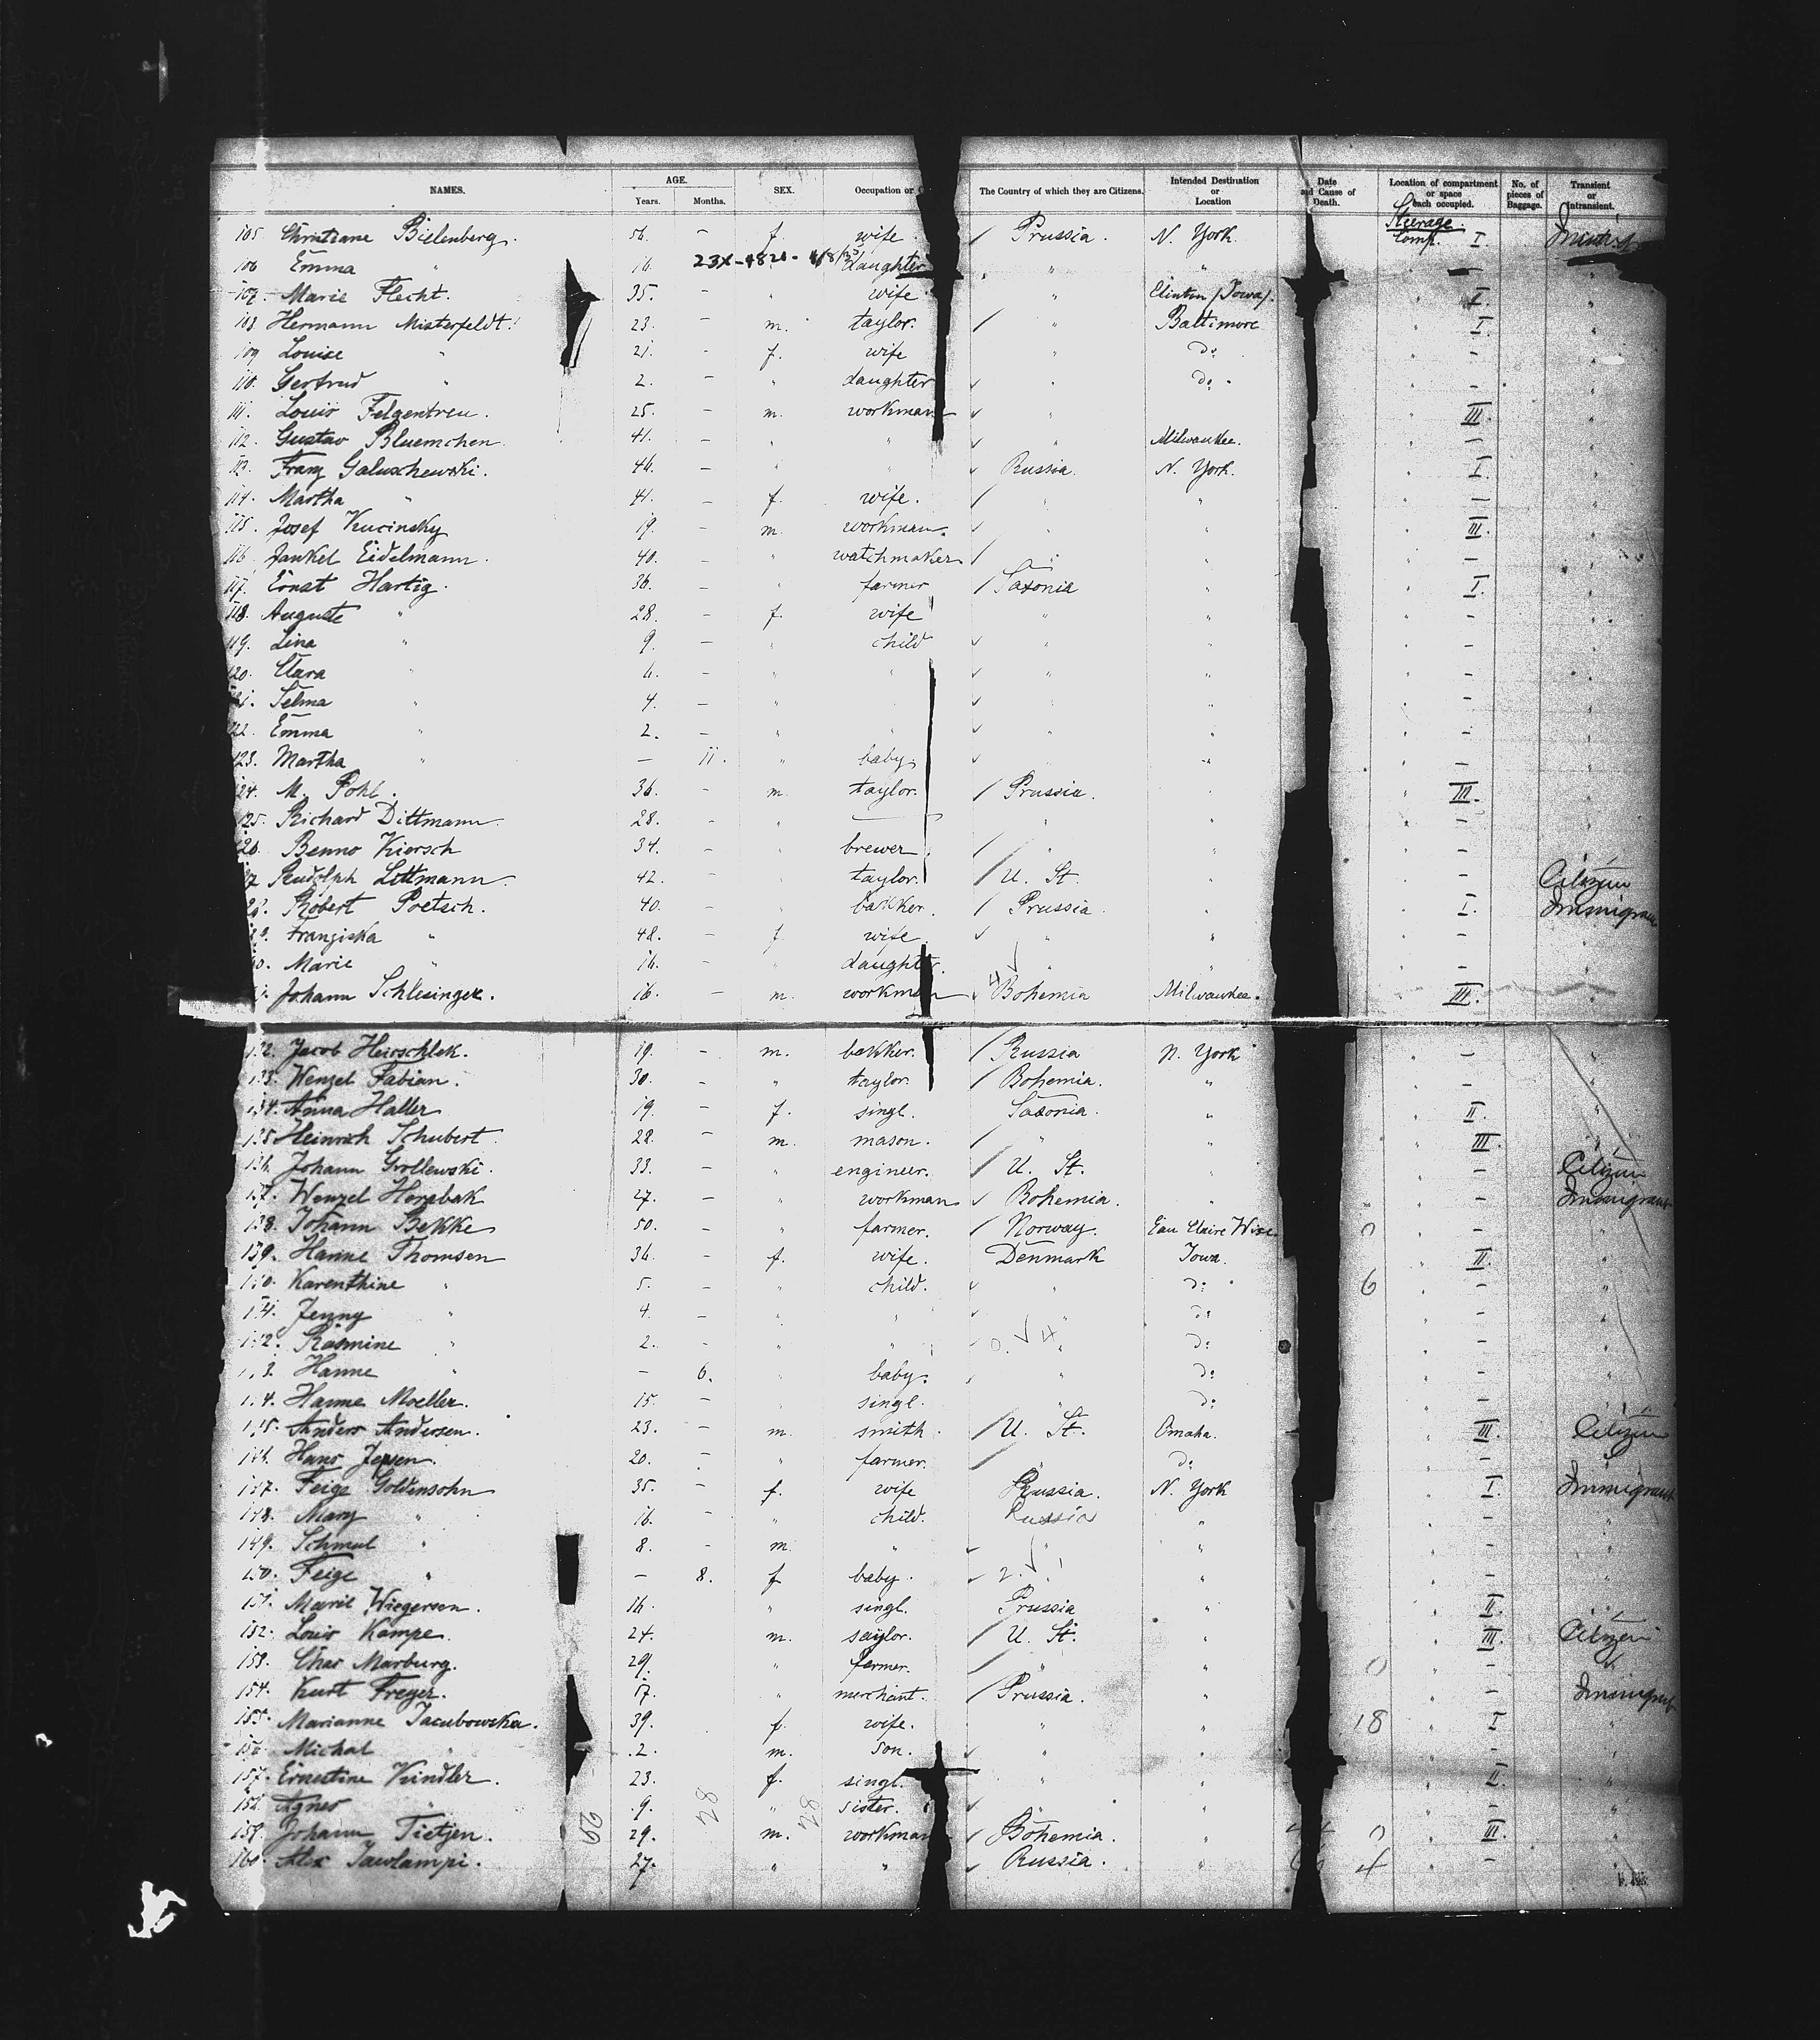 NAMES. AGE. SEX. Occupation or The Country of which they are Citizens. Intended Destination or Location Date and Cause of Death. Location of compartment or space each occupied. No. of pieces of Baggage. Transient or Intransient.
Years. Months.
Steerage
105 Christiane Bielenberg. 56. - f. wife. / Prussia. N. York. Comp. I.
106 Emma " 16. 23X-4820- daughter " " -
107. Marie Flecht. 35. - " wife " Clinton /Iowa/. " I. "
108 Hermann Misterfeldt. 23. - m. taylor. / " Baltimore " I. "
109 Louise " 21. - f. wife " do " - "
110. Gertrud " 2. - " daughter ✓ " do. " - "
111. Louis Felgentreu. 25. - m. workman ✓ " " III. "
112. Gustav Bluemchen. 41. - " " ✓ " Milwaukee. " - "
113. Franz Galuschewski. 46. - " " ✓ Russia. N. York. " I. "
114. Martha " 41. - f. wife. / " " " - "
115. Josef Kucinsky 19. - m. workman. ✓ " " " III. "
116. Jankel Eidelmann. 40. - " watchmaker / " " " - "
117. Ernst Hartig. 36. - " farmer / Saxonia " " I. "
118. Auguste " 28. - f. wife " " " - "
119. Lina " 9. - " child ✓ " " " - "
120. Clara " 6. - " " ✓ " " " - "
121. Selma " 4. - " " ✓ " " " - "
122. Emma " 2. - " " ✓ " " " - "
123. Martha " - 11. " baby. ✓ " " - "
124. M. Pohl. 36. - m. taylor. / Prussia. " " III. "
125. Richard Dittmann. 28. - " — " " " - "
126. Benno Kiersch 34. - " brewer. / " " " - "
27. Rudolph Littmann. 42. - " taylor. / U. St. " " - Citizen
28. Robert Poetsch. 40. - " bakker. / Prussia. " " I. Immigrant
Franziska " 48. - f. wife. ✓ " " " - "
Marie " 16. - " daughter. " " " - "
Johann Schlesinger. 16. - m. workman ✓ Bohemia Milwaukee. III. "
132. Jacob Hirschlek. 19. - m. bakker. / Russia N. York " - "
133. Wenzel Fabian. 30. - " taylor. / Bohemia. " " - "
134. Anna Haller 19. - f. singl. Saxonia. " " II. "
135 Heinrich Schubert. 28. - m. mason. / " " " III. "
136. Johann Grollewski. 33. - " engineer. / U. St. " - Citizen
137. Wenzel Horabak 27. - " workman ✓ Bohemia. " " - Immigrant
138. Johann Bekke 50. - " farmer. / Norway. Eau Claire Wisc. 0 " - "
139. Hanne Thomsen 36. - f. wife. Denmark Iowa. " II. "
140. Karenthine " 5. - " child. ✓ " do 6 " - "
141. Jenny " 4. - " " ✓ " do " - "
142. Rasmine " 2. - " " " do " - "
143. Hanne " - 6. " baby. " do " - "
144. Hanne Moeller. 15. - " singl. " do " - "
145. Anders Andersen. 23. - m. smith. / U. St. Omaha. " III. Citizen
146. Hans Jepsen. 20. - " farmer. / " do " - "
147. Feige Goldensohn 35. - f. wife Russia. N. York " I. Immigrant
148. Mary " 16. - " child. Russia " " - "
149. Schmul " 8. - m. " ✓ " " " - "
150. Feige " - 8. f baby. ✓ " " - "
151. Marie Wiegersen. 16. " singl. Prussia " " II. "
152. Louis Kampe. 24. m. saylor. / U. St. " " III. Citizen
153. Chas Marburg. 29. " farmer. / " " 0 " - "
154. Kurt Freyer. 17. " merchant. / Prussia. " " - Immigrant
155. Marianne Jacubowska. 39. f. wife. " " 18 " I "
156. Michal " 2. m. son. ✓ " " " - "
157. Ernestine Kindler. 23. f. singl. " " " II. "
158. Agnes " 9. " sister. ✓ " " " - "
159. Johann Tietjen. 29. m. workman / Bohemia. " 0 " III. "
160. Alex 27. " " ✓ Russia. " 4 " -
29 28 28